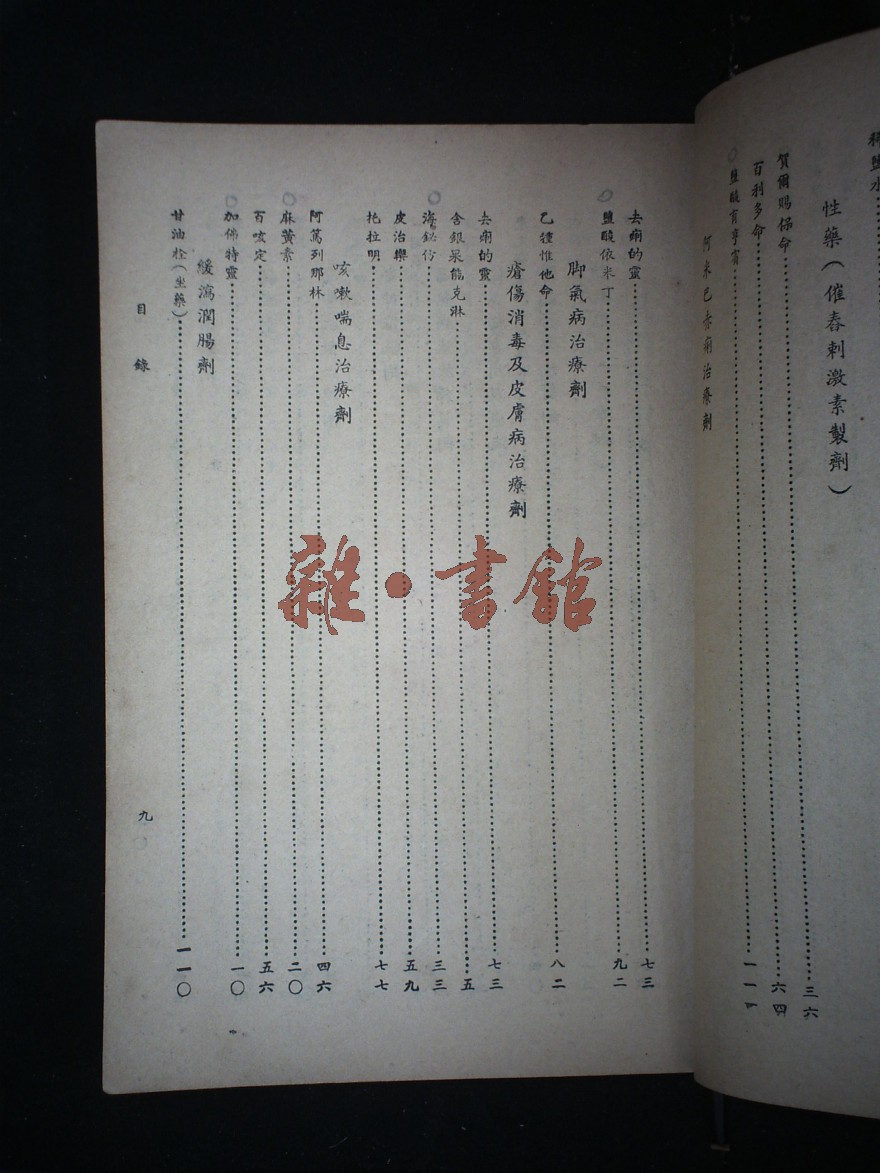 鹽水
性藥（催春刺激素製劑）
賀爾賜保命……三六
百利多命……六四
鹽酸育亨賓……一一
阿米巴赤痢治療劑
去痢的靈……七三
鹽酸依米丁……九二
脚氣病治療劑
乙種惟他命……八二
瘡傷消毒及皮膚病治療劑
去痢的靈……七三
含銀呆能克淋……五
海鉍仿……三三
皮治樂……五九
托拉明……七七
咳嗽喘息治療劑
阿篤列那林……四六
麻黃素……二〇
百咳定……五六
加佛特靈……一〇
緩瀉潤腸劑
甘油栓（坐藥）……一一〇
目錄
九
雜·書館